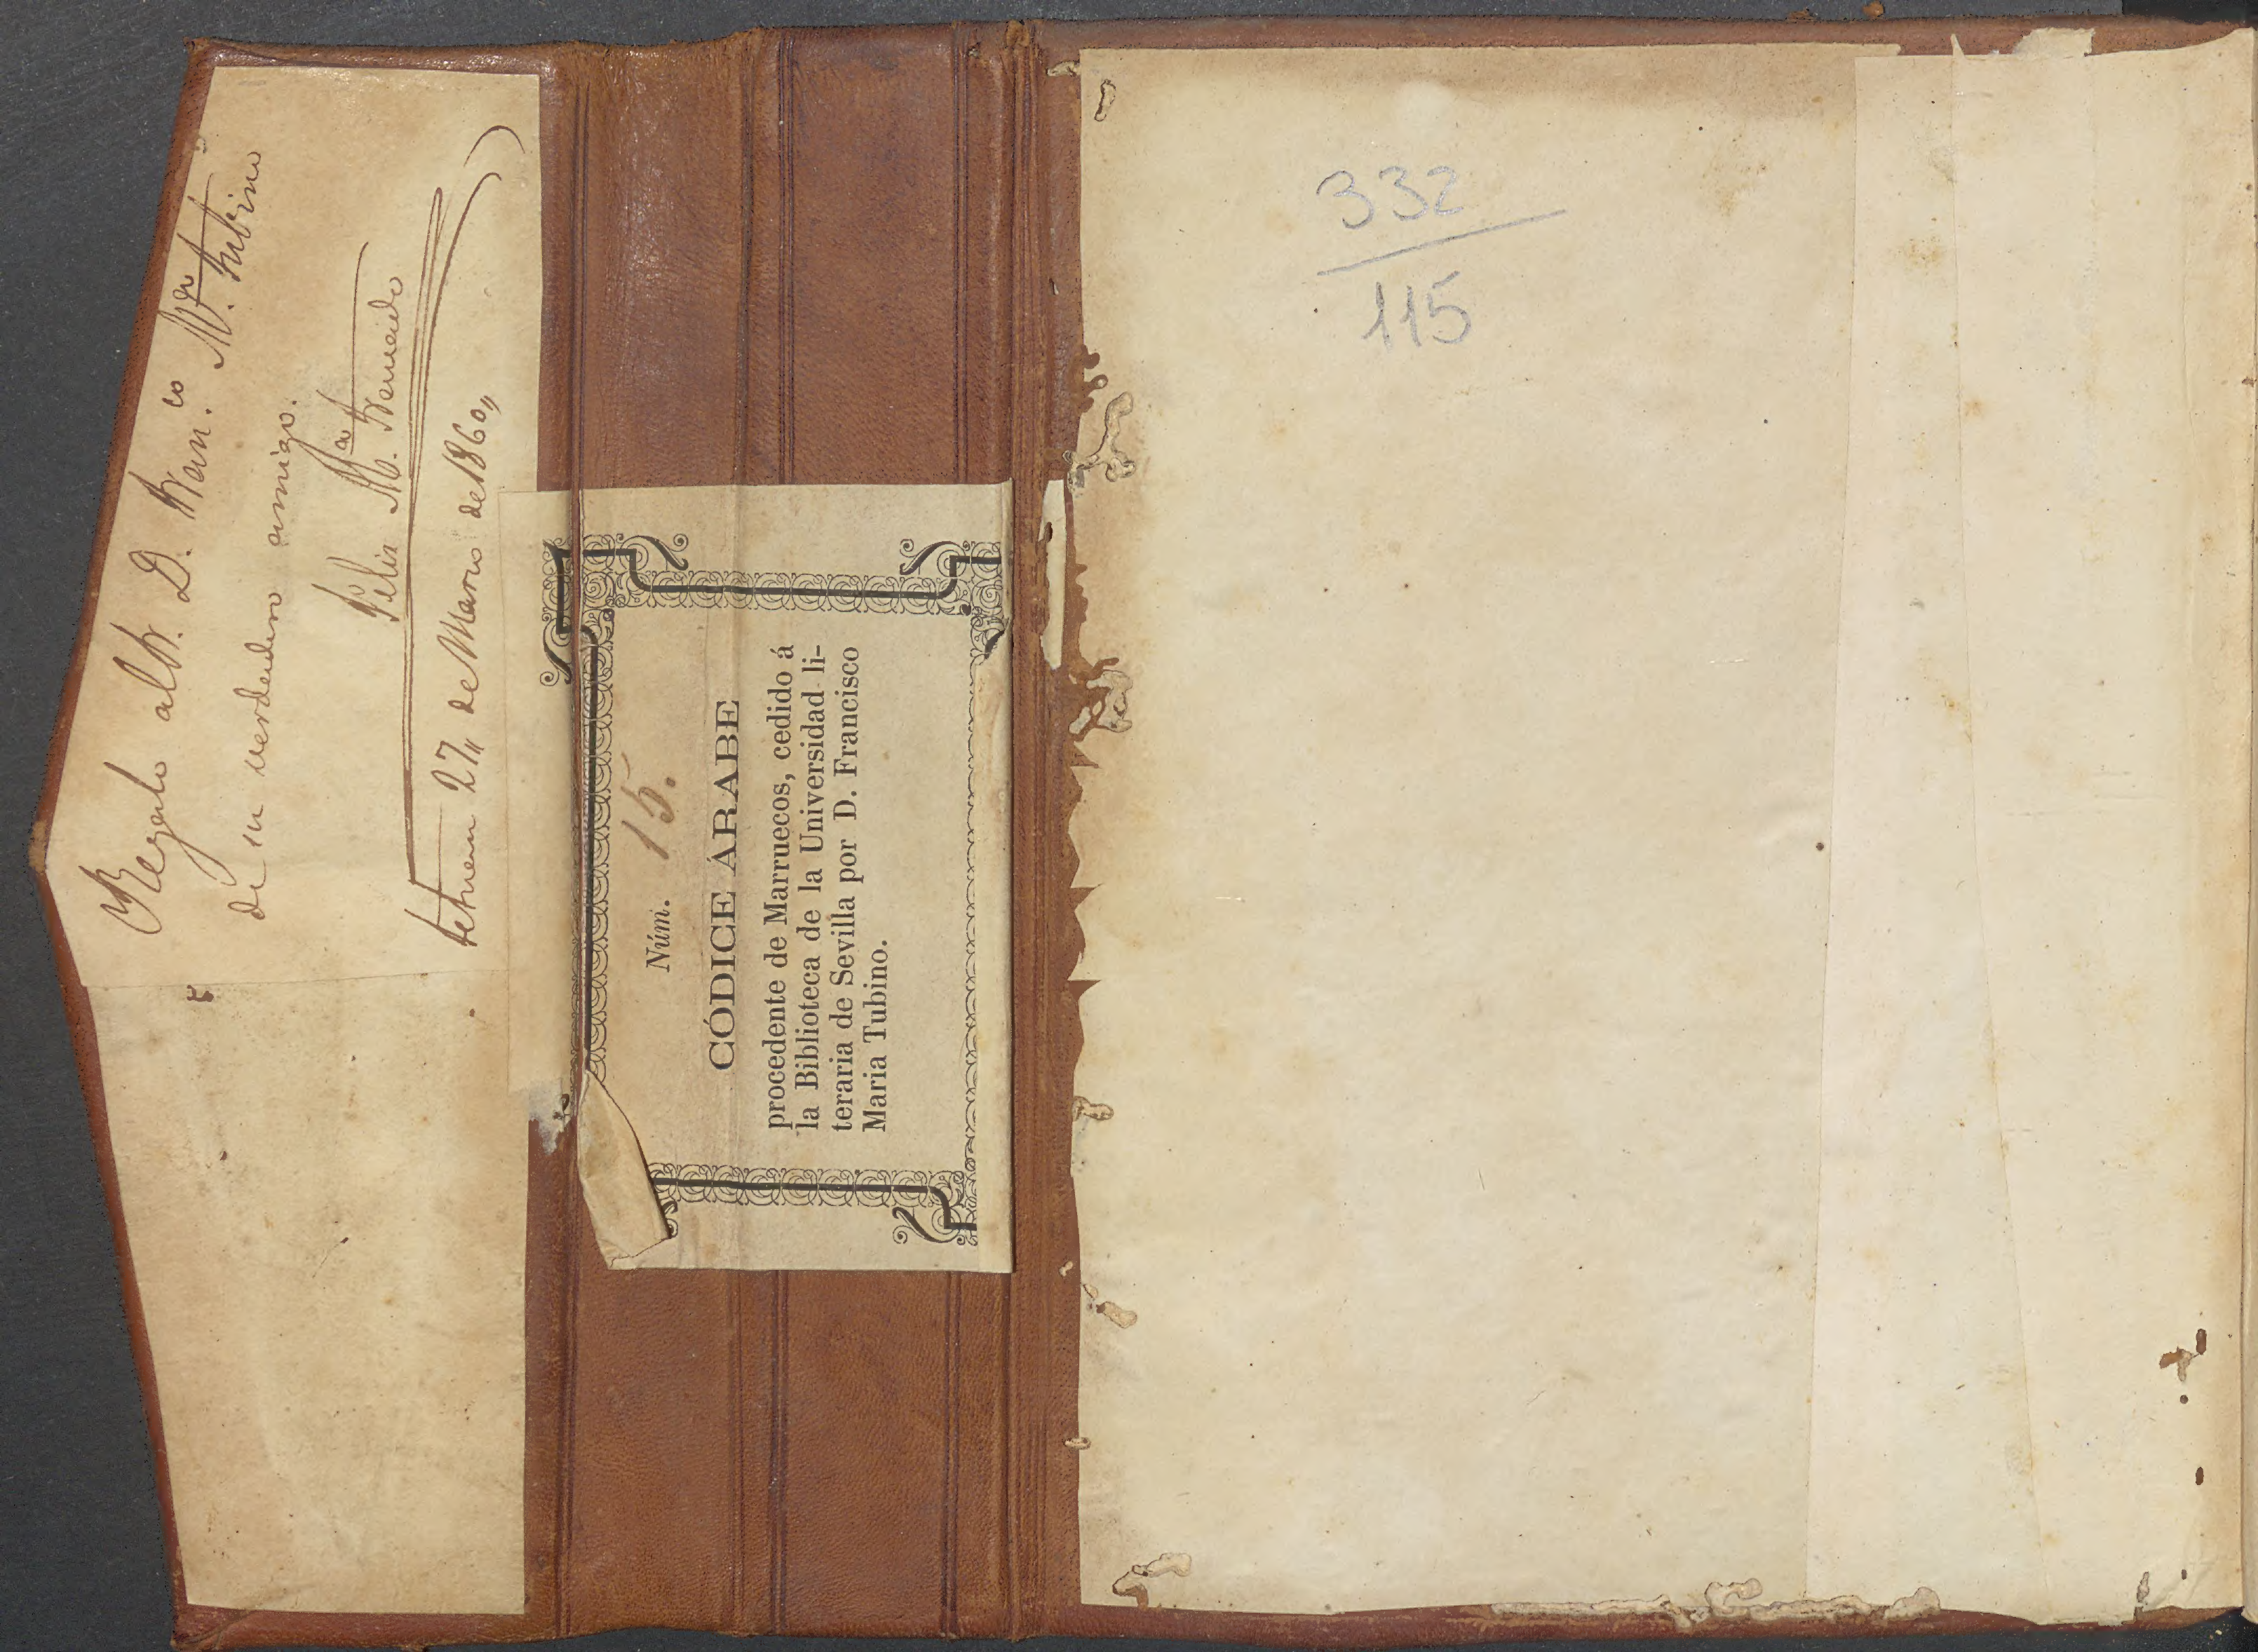 Regalo al Sr. D. Fran.co M.a Tubino
de su verdadero amigo.
Felix M.a
tetuan 27,, de Marzo de 1860,,
Núm. 15.
CÓDICE ÁRABE
procedente de Marruecos, cedido á
la Biblioteca de la Universidad li-
teraria de Sevilla por D. Francisco
Maria Tubino.
332
115